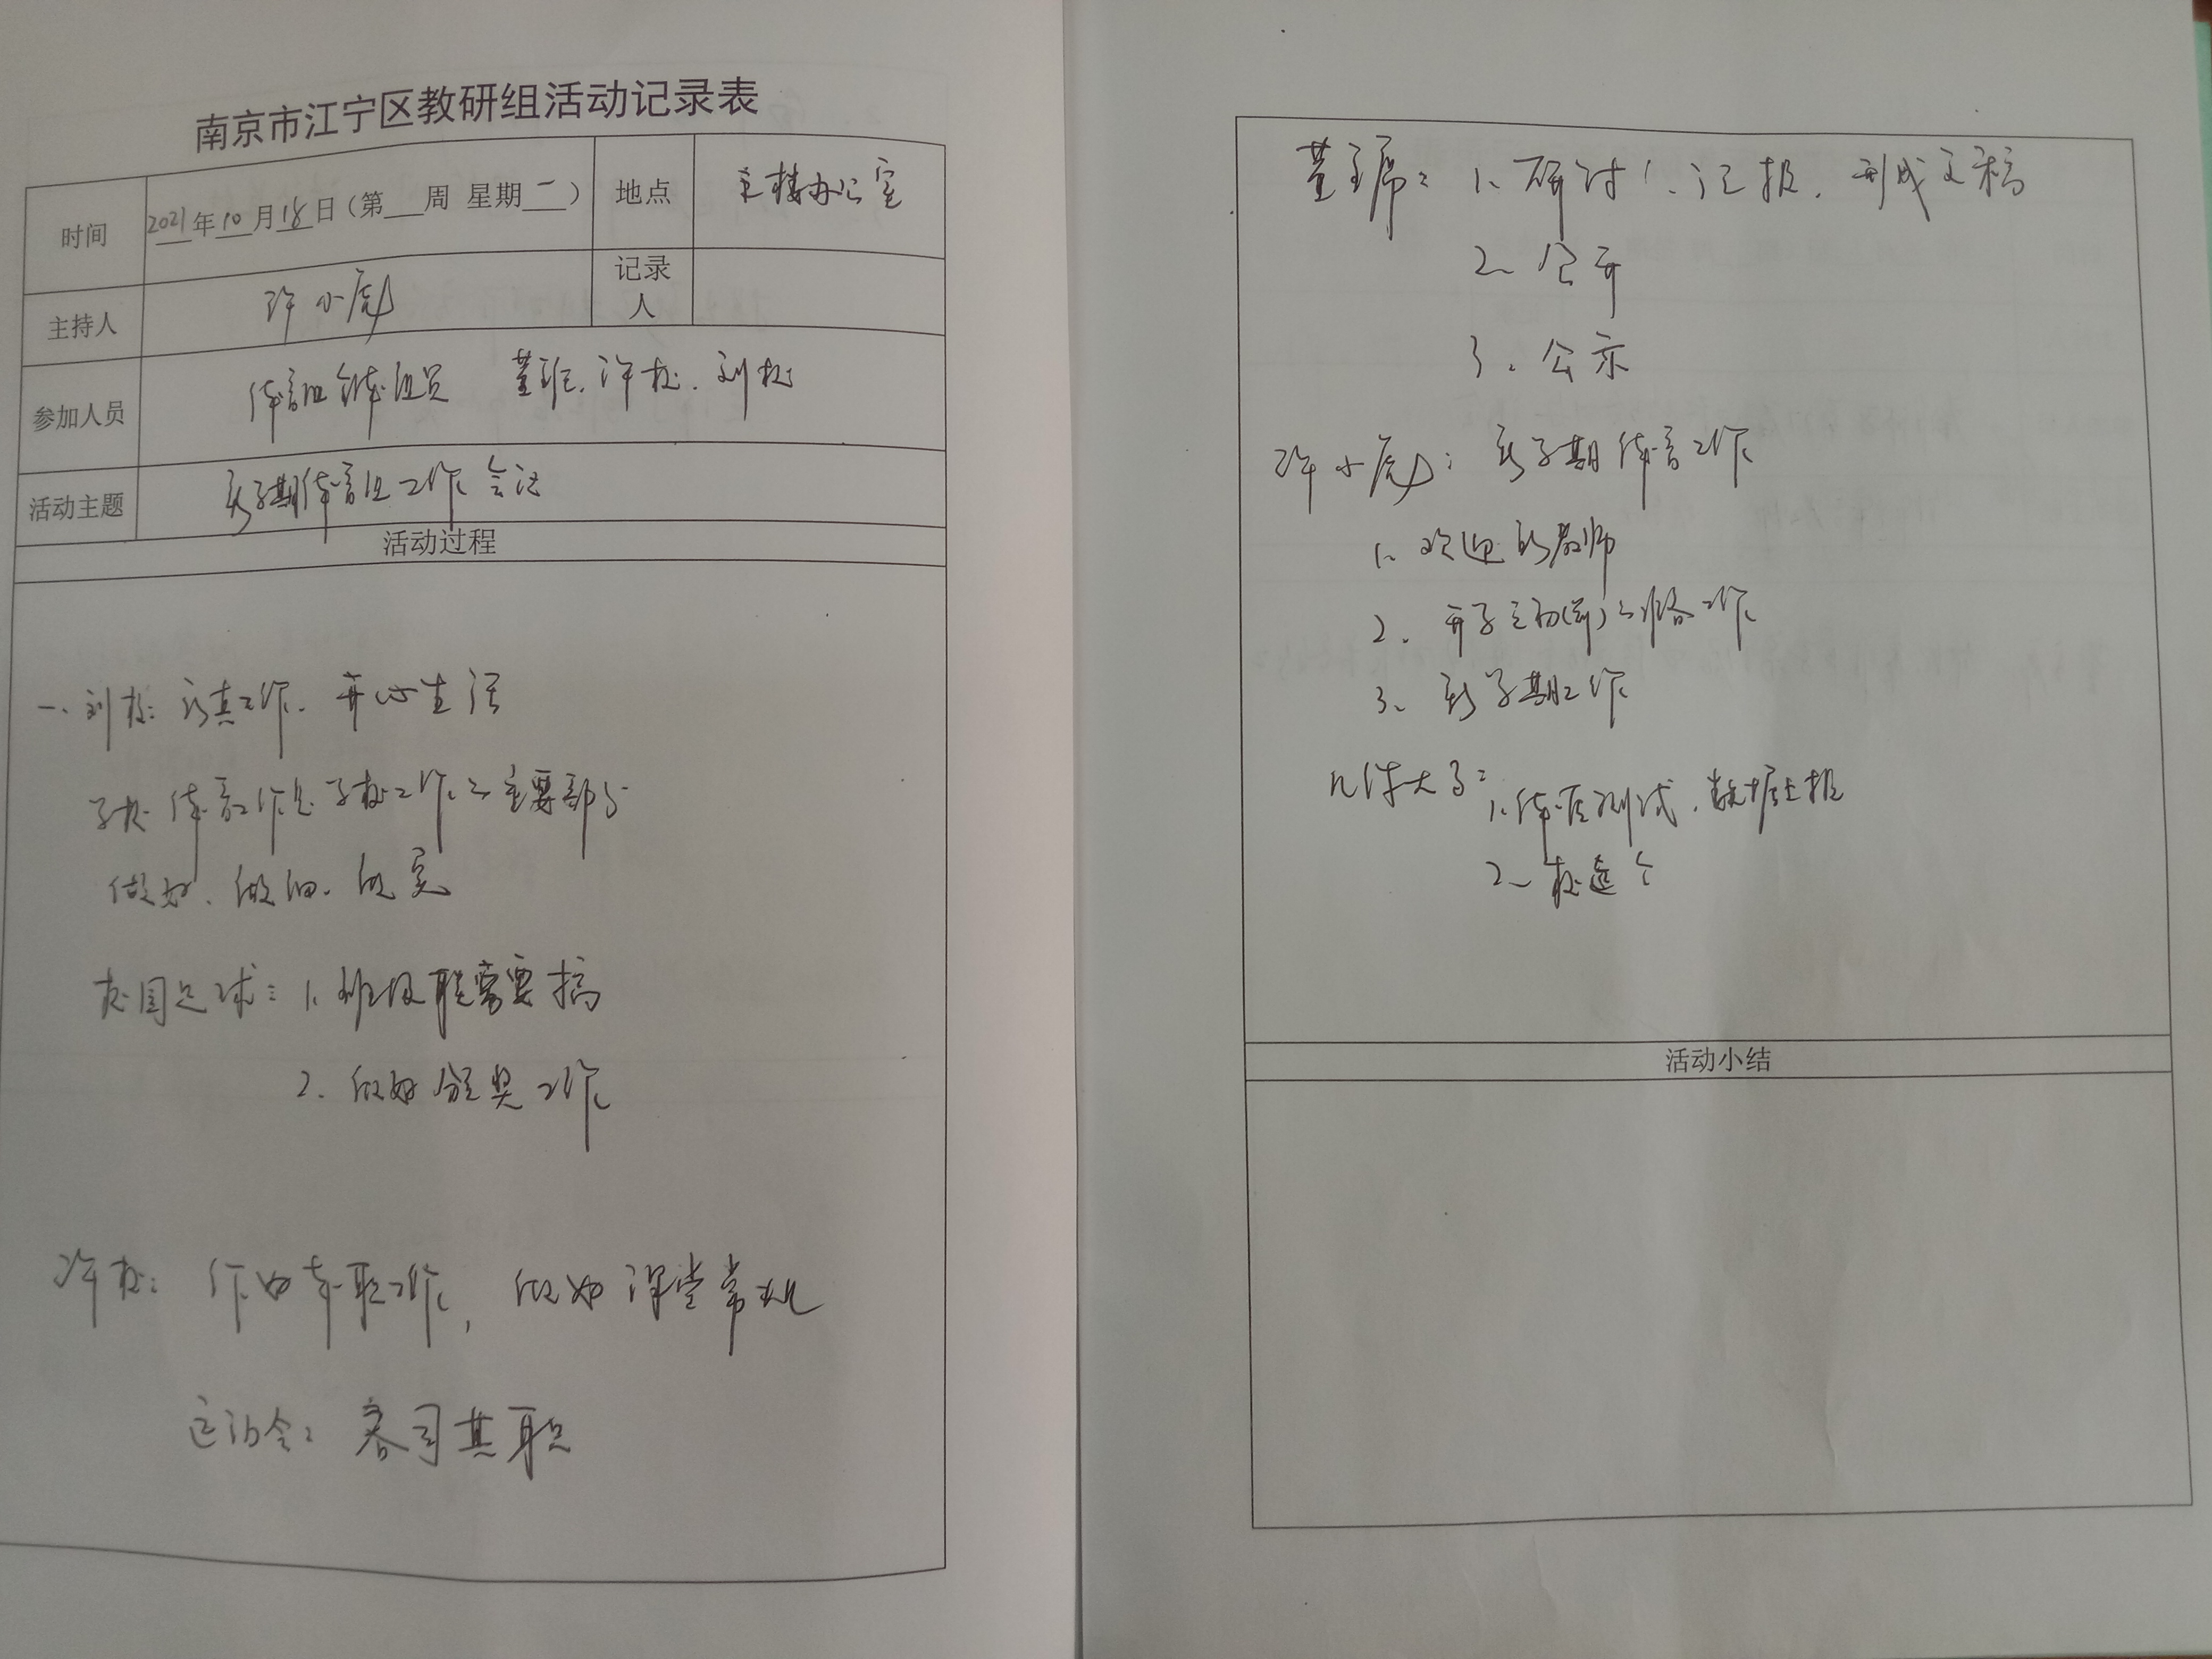 南京市江宁区教研组活动记录表
时间 2021年10月18日（第__周 星期二） 地点 主楼办公室
主持人 许小彪 记录人
参加人员 体育组全体组员 董班、许校、刘校
活动主题 新学期体育组工作会议
活动过程
一、刘校: 认真工作、开心生活
学校体育工作是学校工作之重要部分
做好、做细、做实
校园足球: 1、班级联赛要搞
2、做好颁奖工作
许校: 作好本职工作, 做好课堂常规
运动会: 各司其职
董主席: 1、研讨 汇报、形成文稿
2、公开
3、公示
许小彪: 新学期体育工作
1、欢迎新教师
2、开学之初(前)之准备工作
3、新学期工作
几件大事: 1、体质测试、数据上报
2、校运会
活动小结